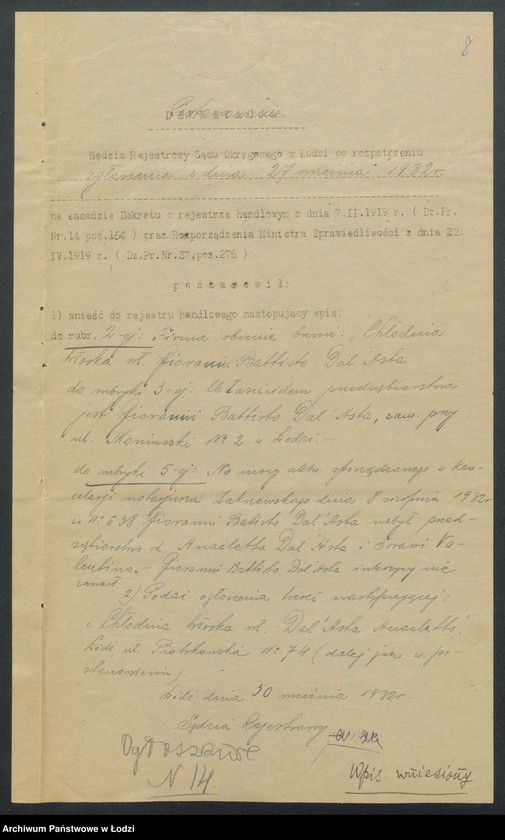 8
Postanowienie
Sędzia Rejestrowy Sądu Okręgowego w Łodzi po rozpatrzeniu
zgłoszenia z dnia 27 września 1932 r.
na zasadzie Dekretu o rejestrze handlowym z dnia 7.II.1919 r. ( Dz.Pr.
Nr.14 poz.164 ) oraz Rozporządzenia Ministra Sprawiedliwości z dnia 22.
IV.1919 r. ( Dz.Pr.Nr.37,poz.276 )
postanowił:
1) wnieść do rejestru handlowego następujący wpis:
do rubr. 2-ej: Firma obecnie brzmi: „Chłodnia
Włoska wł. Giovanni Battisto Dal Asta
do rubryki 3-ej: Właścicielem przedsiębiorstwa
jest Giovanni Battisto Dal'Asta, zam. przy
ul. Moniuszki № 2 w Łodzi.-
do rubryki 5-ej: Na mocy aktu sporządzonego w kan-
celarji notarjusza dnia 8 sierpnia 1932 r
za № 638 Giovanni Batisto Dal'Asta nabył przed-
siębiorstwo od Anacletta Dal'Asta i Va-
lentino.- Giovanni Battisto Dal'Asta intercyzy nie
zawarł
2) Podać ogłoszenia treści następującej:
„Chłodnia Włoska wł. Dal'Asta Anacletto",
Łódź ul. Piotrkowska № 74 (dalej jak w po-
stanowieniu)
Łódź dnia 30 września 1932 r.
Sędzia Rejestrowy
Ogłoszenie
N 14.
Wpis wniesiony
Archiwum Państwowe w Łodzi